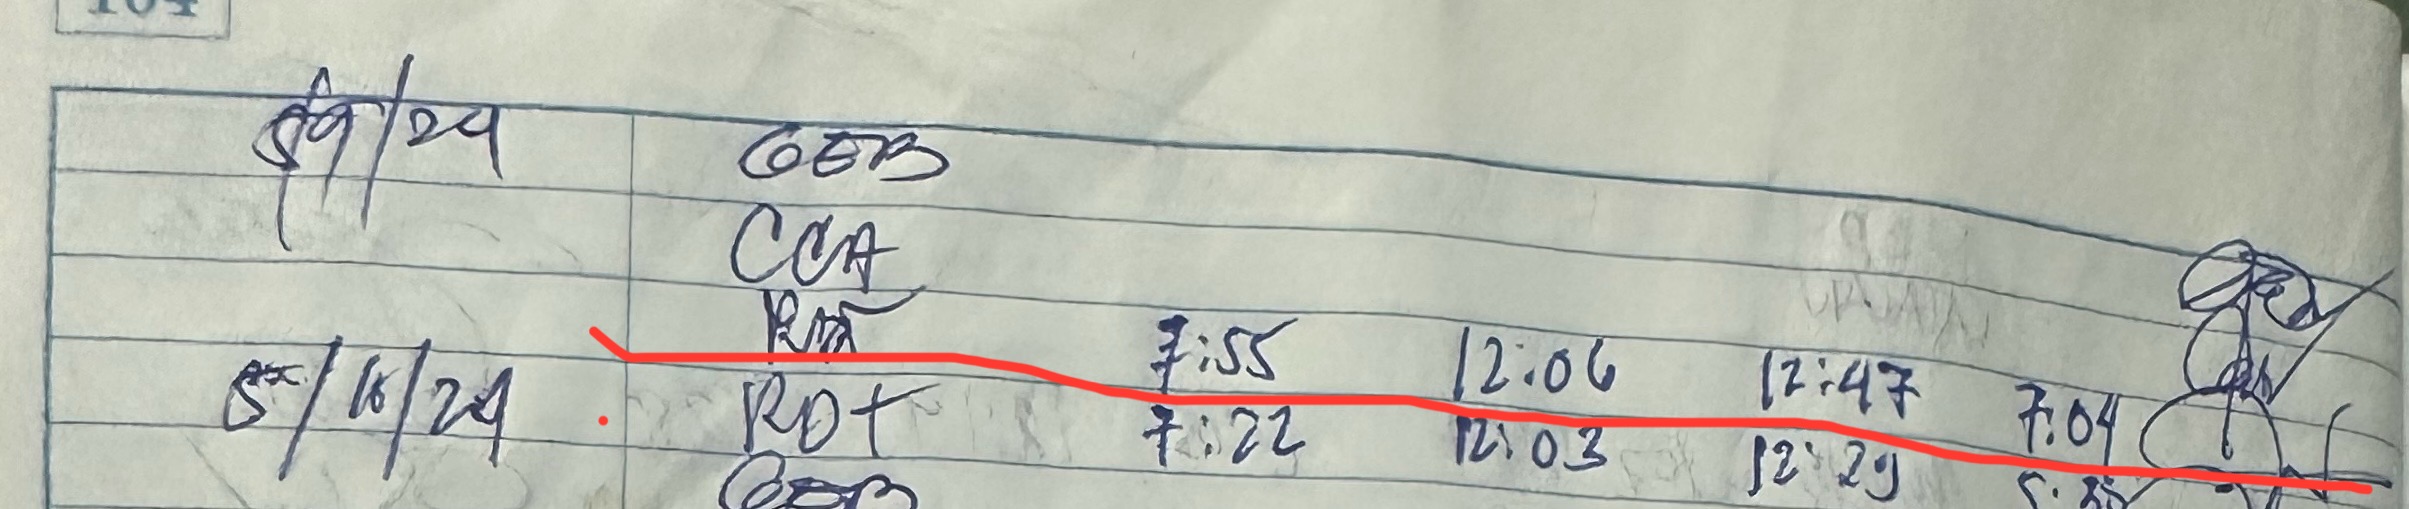 104
5/9/24 GEB
CCA
RDT 7:55 12:06 12:47 7:04
5/10/24 RDT 7:22 12:03 12:29
GEB